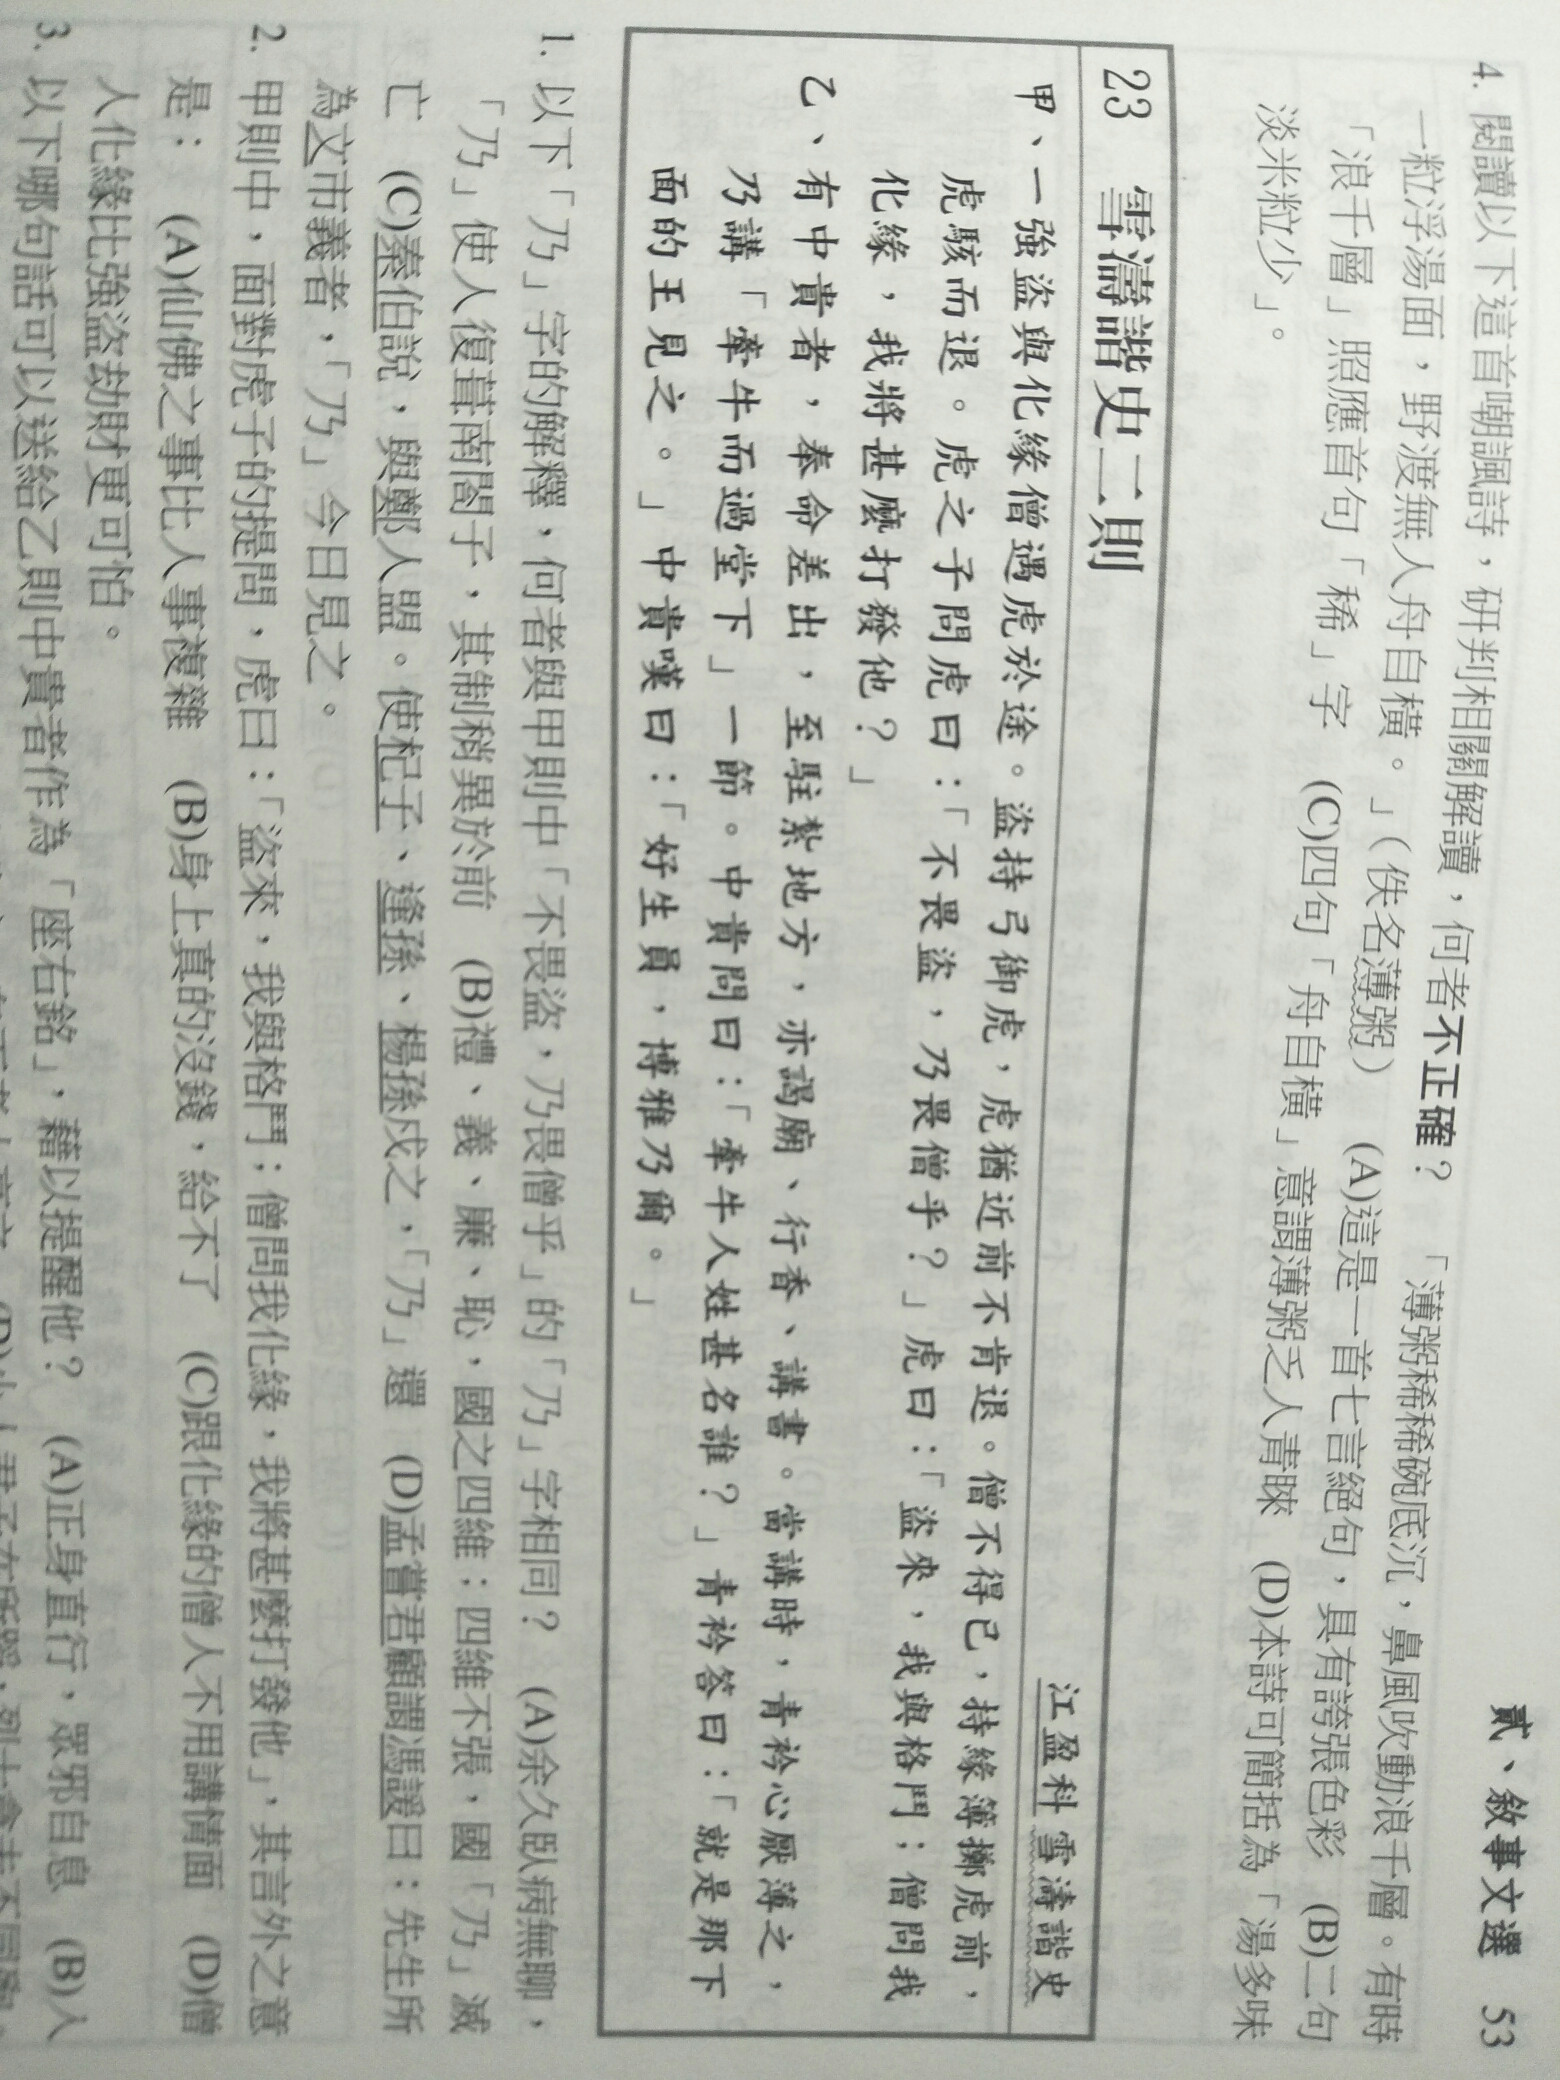 貳、敘事文選 53
4. 閱讀以下這首嘲諷詩，研判相關解讀，何者不正確？ 「薄粥稀稀碗底沉，鼻風吹動浪千層。有時
一粒浮湯面，野渡無人舟自橫。」（佚名薄粥） (A)這是一首七言絕句，具有誇張色彩 (B)二句
「浪千層」照應首句「稀」字 (C)四句「舟自橫」意謂薄粥乏人青睞 (D)本詩可簡括為「湯多味
淡米粒少」。
23 雪濤諧史二則
江盈科 雪濤諧史
甲、一強盜與化緣僧遇虎於途。盜持弓御虎，虎猶近前不肯退。僧不得已，持緣簿擲虎前，
虎駭而退。虎之子問虎曰：「不畏盜，乃畏僧乎？」虎曰：「盜來，我與格鬥；僧問我
化緣，我將甚麼打發他？」
乙、有中貴者，奉命差出，至駐紮地方，亦謁廟、行香、講書。當講時，青衿心厭薄之，
乃講「牽牛而過堂下」一節。中貴問曰：「牽牛人姓甚名誰？」青衿答曰：「就是那下
面的王見之。」中貴嘆曰：「好生員，博雅乃爾。」
1. 以下「乃」字的解釋，何者與甲則中「不畏盜，乃畏僧乎」的「乃」字相同？ (A)余久臥病無聊，
「乃」使人復葺南閤子，其制稍異於前 (B)禮、義、廉、恥，國之四維；四維不張，國「乃」滅
亡 (C)秦伯說，與鄭人盟。使杞子、逢孫、楊孫戍之，「乃」還 (D)孟嘗君顧謂馮諼曰：先生所
為文市義者，「乃」今日見之。
2. 甲則中，面對虎子的提問，虎曰：「盜來，我與格鬥；僧問我化緣，我將甚麼打發他」，其言外之意
是： (A)仙佛之事比人事複雜 (B)身上真的沒錢，給不了 (C)跟化緣的僧人不用講情面 (D)僧
人化緣比強盜劫財更可怕。
3. 以下哪句話可以送給乙則中貴者作為「座右銘」，藉以提醒他？ (A)正身直行，眾邪自息 (B)人